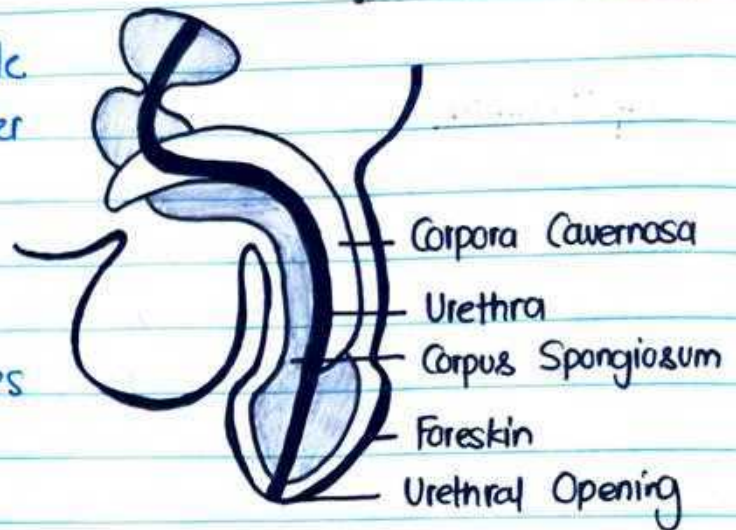 Corpora Cavernosa
Urethra
Corpus Spongiosum
Foreskin
Urethral Opening